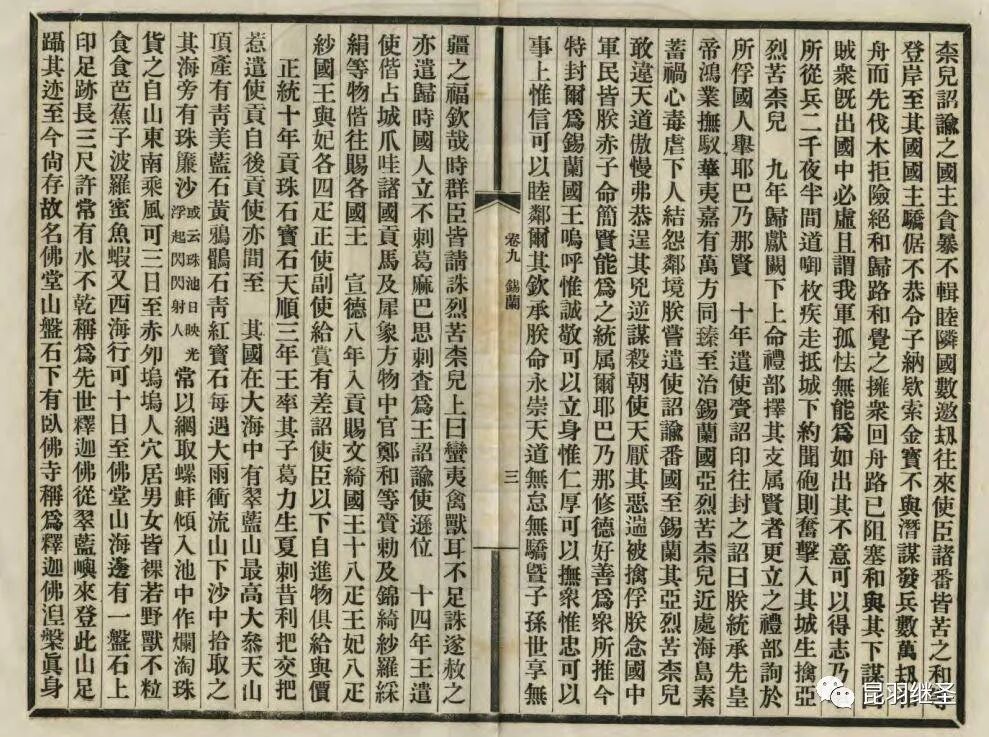 柰兒詔諭之國主貪暴不輯睦隣國數邀刼往來使臣諸番皆苦之和
登岸至其國國主驕倨不恭令子納欵索金寶不與潛謀發兵數萬刼
舟而先伐木拒險絕和歸路和覺之擁衆回舟路已阻塞和與其下謀曰
賊衆旣出國中必虛且謂我軍孤怯無能爲如出其不意可以得志乃
所從兵二千夜半間道啣枚疾走抵城下約聞砲則奮擊入其城生擒亞
烈苦柰兒 九年歸獻闕下上命禮部擇其支属賢者更立之禮部詢於
所俘國人舉耶巴乃那賢 十年遣使賫詔印往封之詔曰朕統承先皇
帝鴻業撫馭華夷嘉有萬方同臻至治錫蘭國亞烈苦柰兒近處海島素
蓄禍心毒虐下人結怨鄰境朕嘗遣使詔諭番國至錫蘭其亞烈苦柰兒
敢違天道傲慢弗恭逞其兇逆謀殺朝使天厭其惡遄被擒俘朕念國中
軍民皆朕赤子命簡賢能爲之統属爾耶巴乃那修德好善爲衆所推今
特封爾爲錫蘭國王嗚呼惟誠敬可以立身惟仁厚可以撫衆惟忠可以
事上惟信可以睦鄰爾其欽承朕命永崇天道無怠無驕曁子孫世享無
卷九 錫蘭 三
疆之福欽哉時群臣皆請誅烈苦柰兒上曰蠻夷禽獸耳不足誅遂赦之
亦遣歸時國人立不刺葛麻巴思刺查爲王詔諭使遜位 十四年王遣
使偕占城爪哇諸國貢馬及犀象方物中官鄭和等賫勅及錦綺紗羅綵
絹等物偕往賜各國王 宣德八年入貢賜文綺國王十八疋王妃八疋
紗國王與妃各四疋正使副使給賞有差詔使臣以下自進物俱給與價
正統十年貢珠石寶石天順三年王率其子葛力生夏刺昔利把交把
惹遣使貢自後貢使亦間至 其國在大海中有翠藍山最高大參天山
頂產有靑美藍石黃鴉鶻石靑紅寶石每遇大雨衝流山下沙中拾取之
其海旁有珠簾沙或云珠池日映光浮起閃閃射人常以網取螺蚌傾入池中作爛淘珠
貨之自山東南乘風可三日至赤夘塢塢人穴居男女皆裸若野獸不粒
食食芭蕉子波羅蜜魚蝦又西海行可十日至佛堂山海邊有一盤石上
印足跡長三尺許常有水不乾稱爲先世釋迦佛從翠藍嶼來登此山足
躡其迹至今尙存故名佛堂山盤石下有臥佛寺稱爲釋迦佛湼槃眞身
昆羽继圣